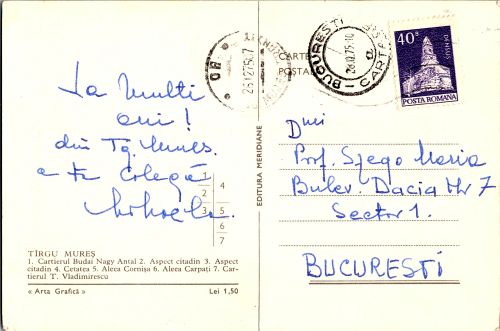 La multi
ani!
din Tg. Mureș.
a ta Colegă
Mihaela.
1
2
3
4
5
6
7
TÎRGU MUREȘ
1. Cartierul Budai Nagy Antal 2. Aspect citadin 3. Aspect
citadin 4. Cetatea 5. Aleea Cornișa 6. Aleea Carpați 7. Car-
tierul T. Vladimirescu
« Arta Grafică »
Lei 1,50
EDITURA MERIDIANE
CARTE
POȘTA
26.12.75.
BUCURESTI
28.12.75.10
CARTA
40B
DENSUȘ
POSTA ROMANA
Dnei
Prof. Szego Maria
Bulev. Dacia Nr 7
Sector 1.
BUCURESTI